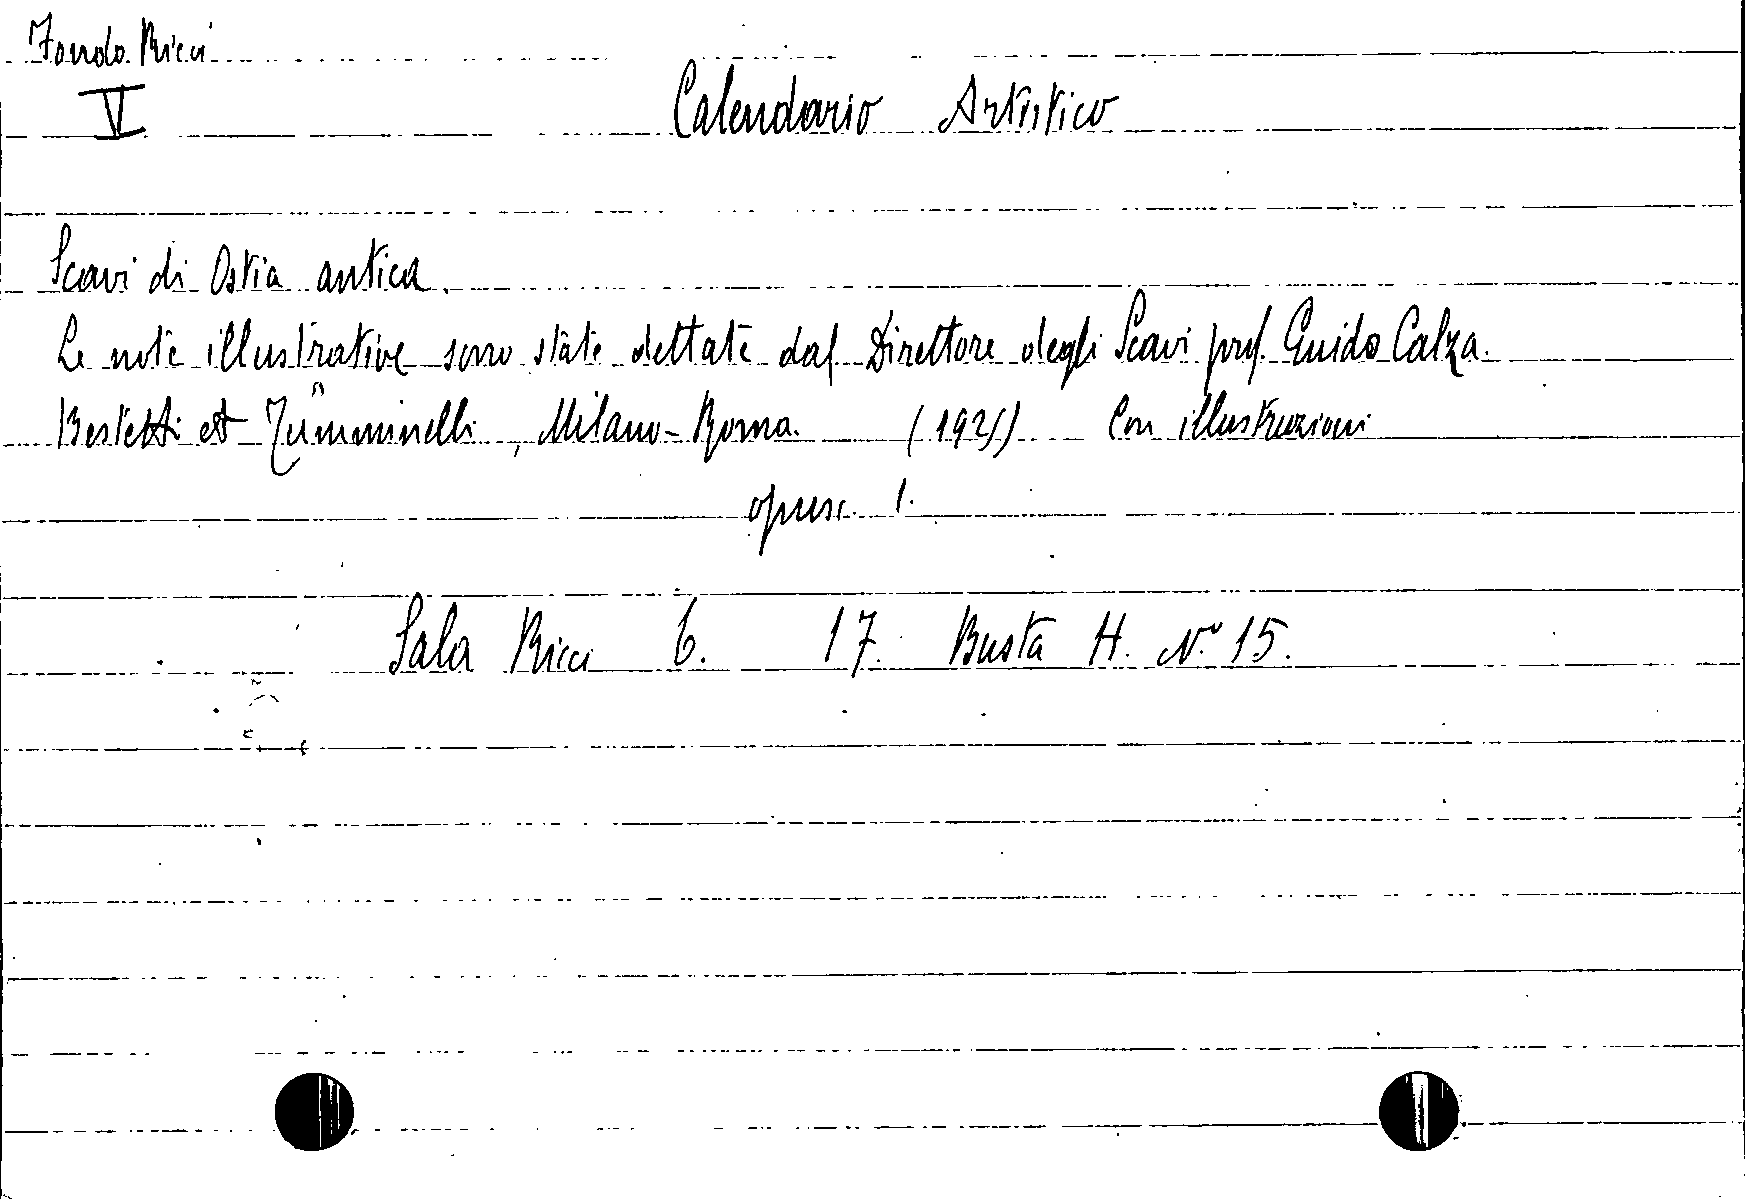 Fondo Ricci
V
Calendario Artistico
Scavi di Ostia antica.
Le note illustrative sono state dettate dal Direttore degli Scavi prof. Guido Calza.
Bestetti et Tumminelli, Milano-Roma. Con illustrazioni
opusc. 1.
Sala Ricci 6. 17. Busta H. N.° 15.